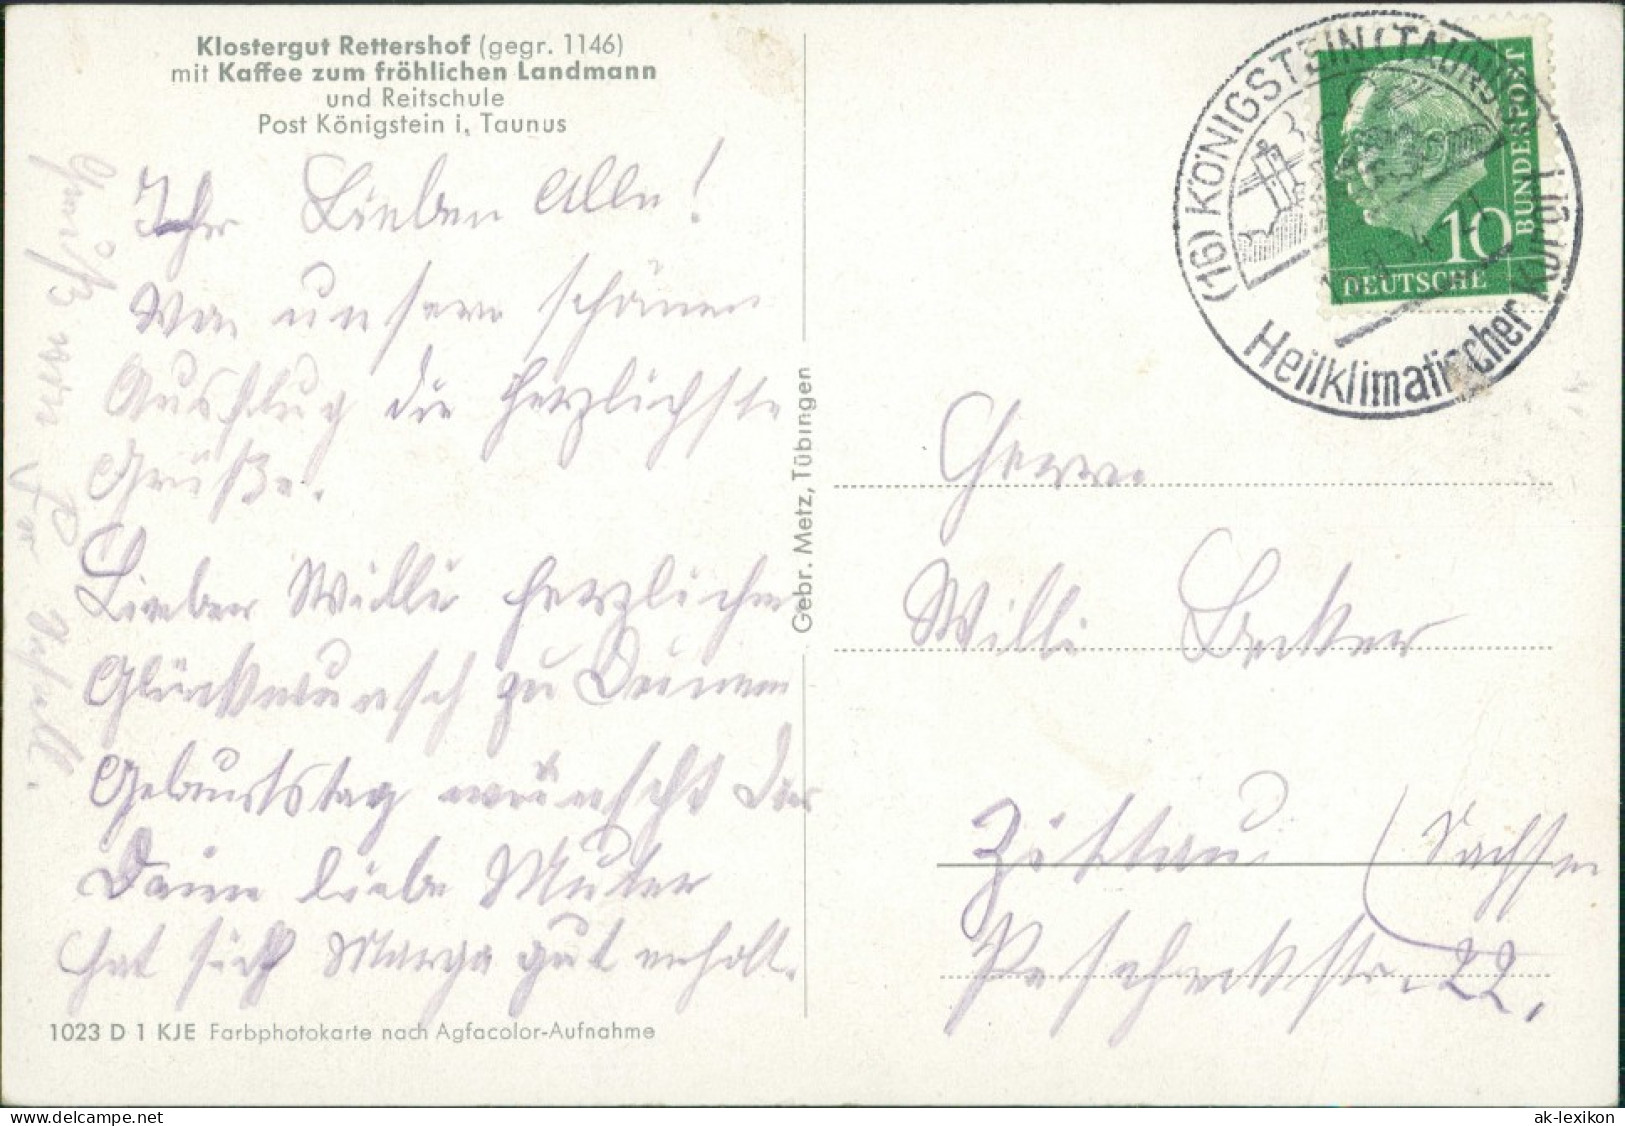 Klostergut Rettershof (gegr. 1146)
mit Kaffee zum fröhlichen Landmann
und Reitschule
Post Königstein i. Taunus
Ihr Lieben Alle!
Von unserem schönen
Ausflug die herzlichste
Grüße.
Lieber Willi herzlichen
Glückwunsch zu Deinem
Geburtstag wünscht Dir
Deine liebe Mutter
hat sich Marga gut erholt.
1023 D 1 KJE Farbphotokarte nach Agfacolor-Aufnahme
Gebr. Metz, Tübingen
(16) KÖNIGSTEIN (TAUNUS)
Heilklimatischer Kurort
10
DEUTSCHE
BUNDESPOST
Herrn
Willi Becker
Zittau (Sachsen
Pescheckstr. 22,
www.delcampe.net
ak-lexikon